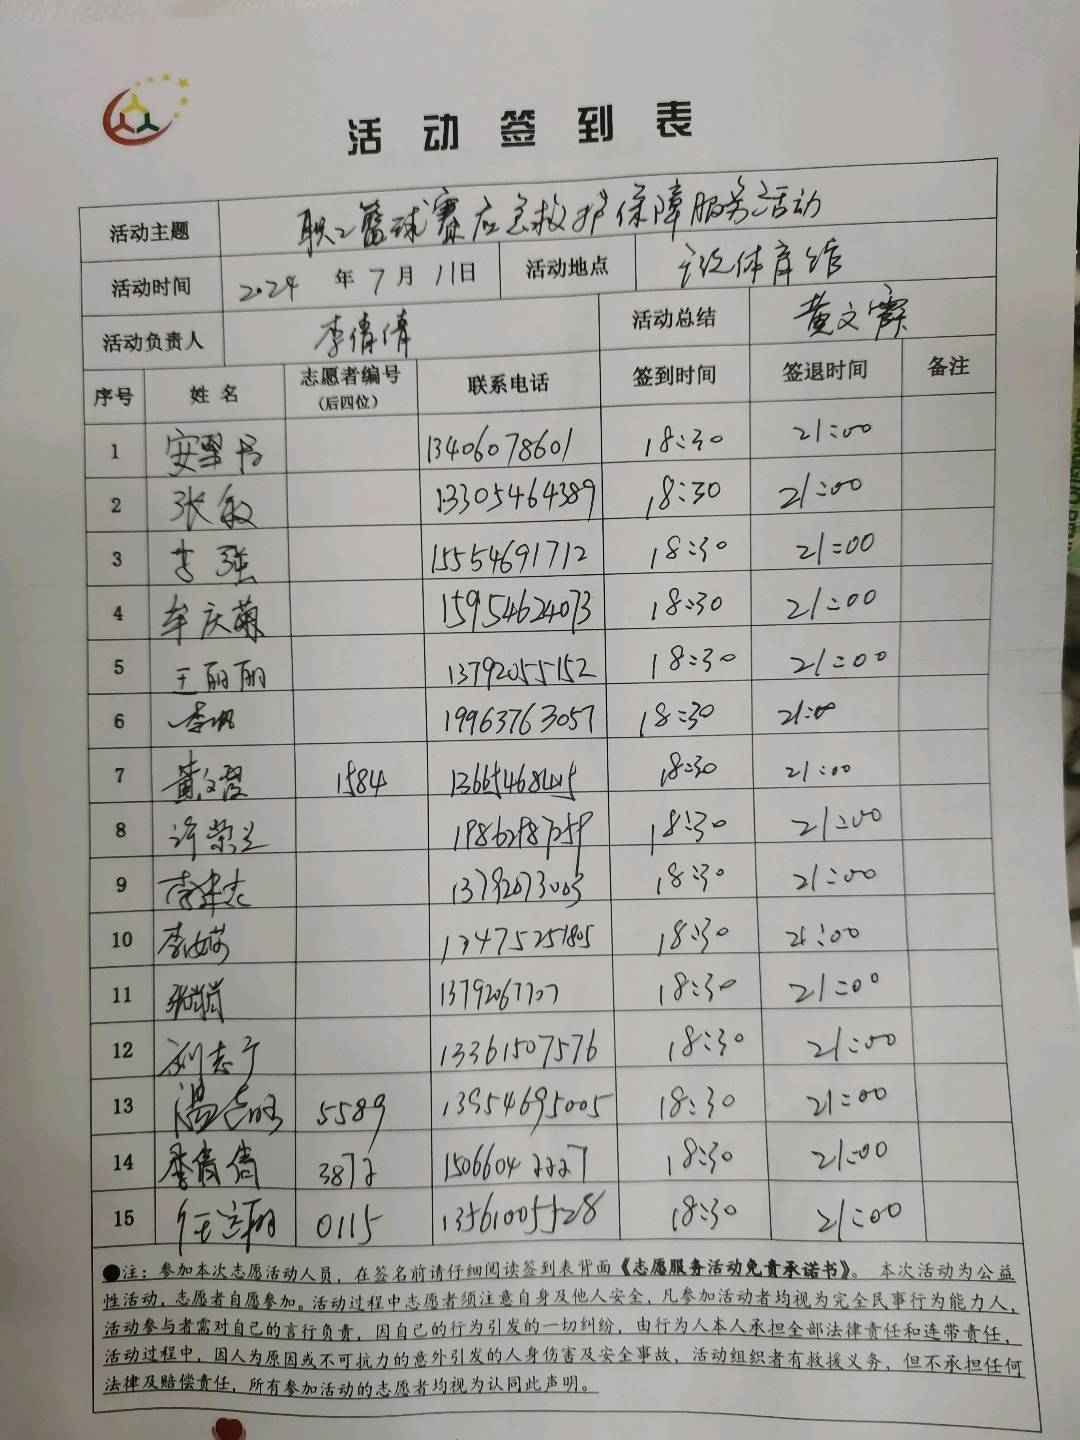 活动签到表
活动主题 职工篮球赛应急救护保障服务活动
活动时间 2024年7月11日 活动地点 体育馆
活动负责人 李倩倩 活动总结 黄文霞
序号 姓名 志愿者编号(后四位) 联系电话 签到时间 签退时间 备注
1 13406078601 18:30 21:00
2 张敏 13305464389 18:30 21:00
3 李强 15554691712 18:30 21:00
4 牟庆菊 15954624073 18:30 21:00
5 王丽丽 13792055152 18:30 21:00
6 19963763057 18:30 21:00
7 黄文霞 1584 18:30 21:00
8 许荣兰 18:30 21:00
9 李建志 13792073003 18:30 21:00
10 13475251805 18:30 21:00
11 18:30 21:00
12 刘志宁 13361507576 18:30 21:00
13 5589 13954695005 18:30 21:00
14 李倩倩 3872 15066042227 18:30 21:00
15 0115 13561005528 18:30 21:00
●注：参加本次志愿活动人员，在签名前请仔细阅读签到表背面《志愿服务活动免责承诺书》。本次活动为公益
性活动，志愿者自愿参加。活动过程中志愿者须注意自身及他人安全，凡参加活动者均视为完全民事行为能力人，
活动参与者需对自己的言行负责，因自己的行为引发的一切纠纷，由行为人本人承担全部法律责任和连带责任，
活动过程中，因人为原因或不可抗力的意外引发的人身伤害及安全事故，活动组织者有救援义务，但不承担任何
法律及赔偿责任，所有参加活动的志愿者均视为认同此声明。